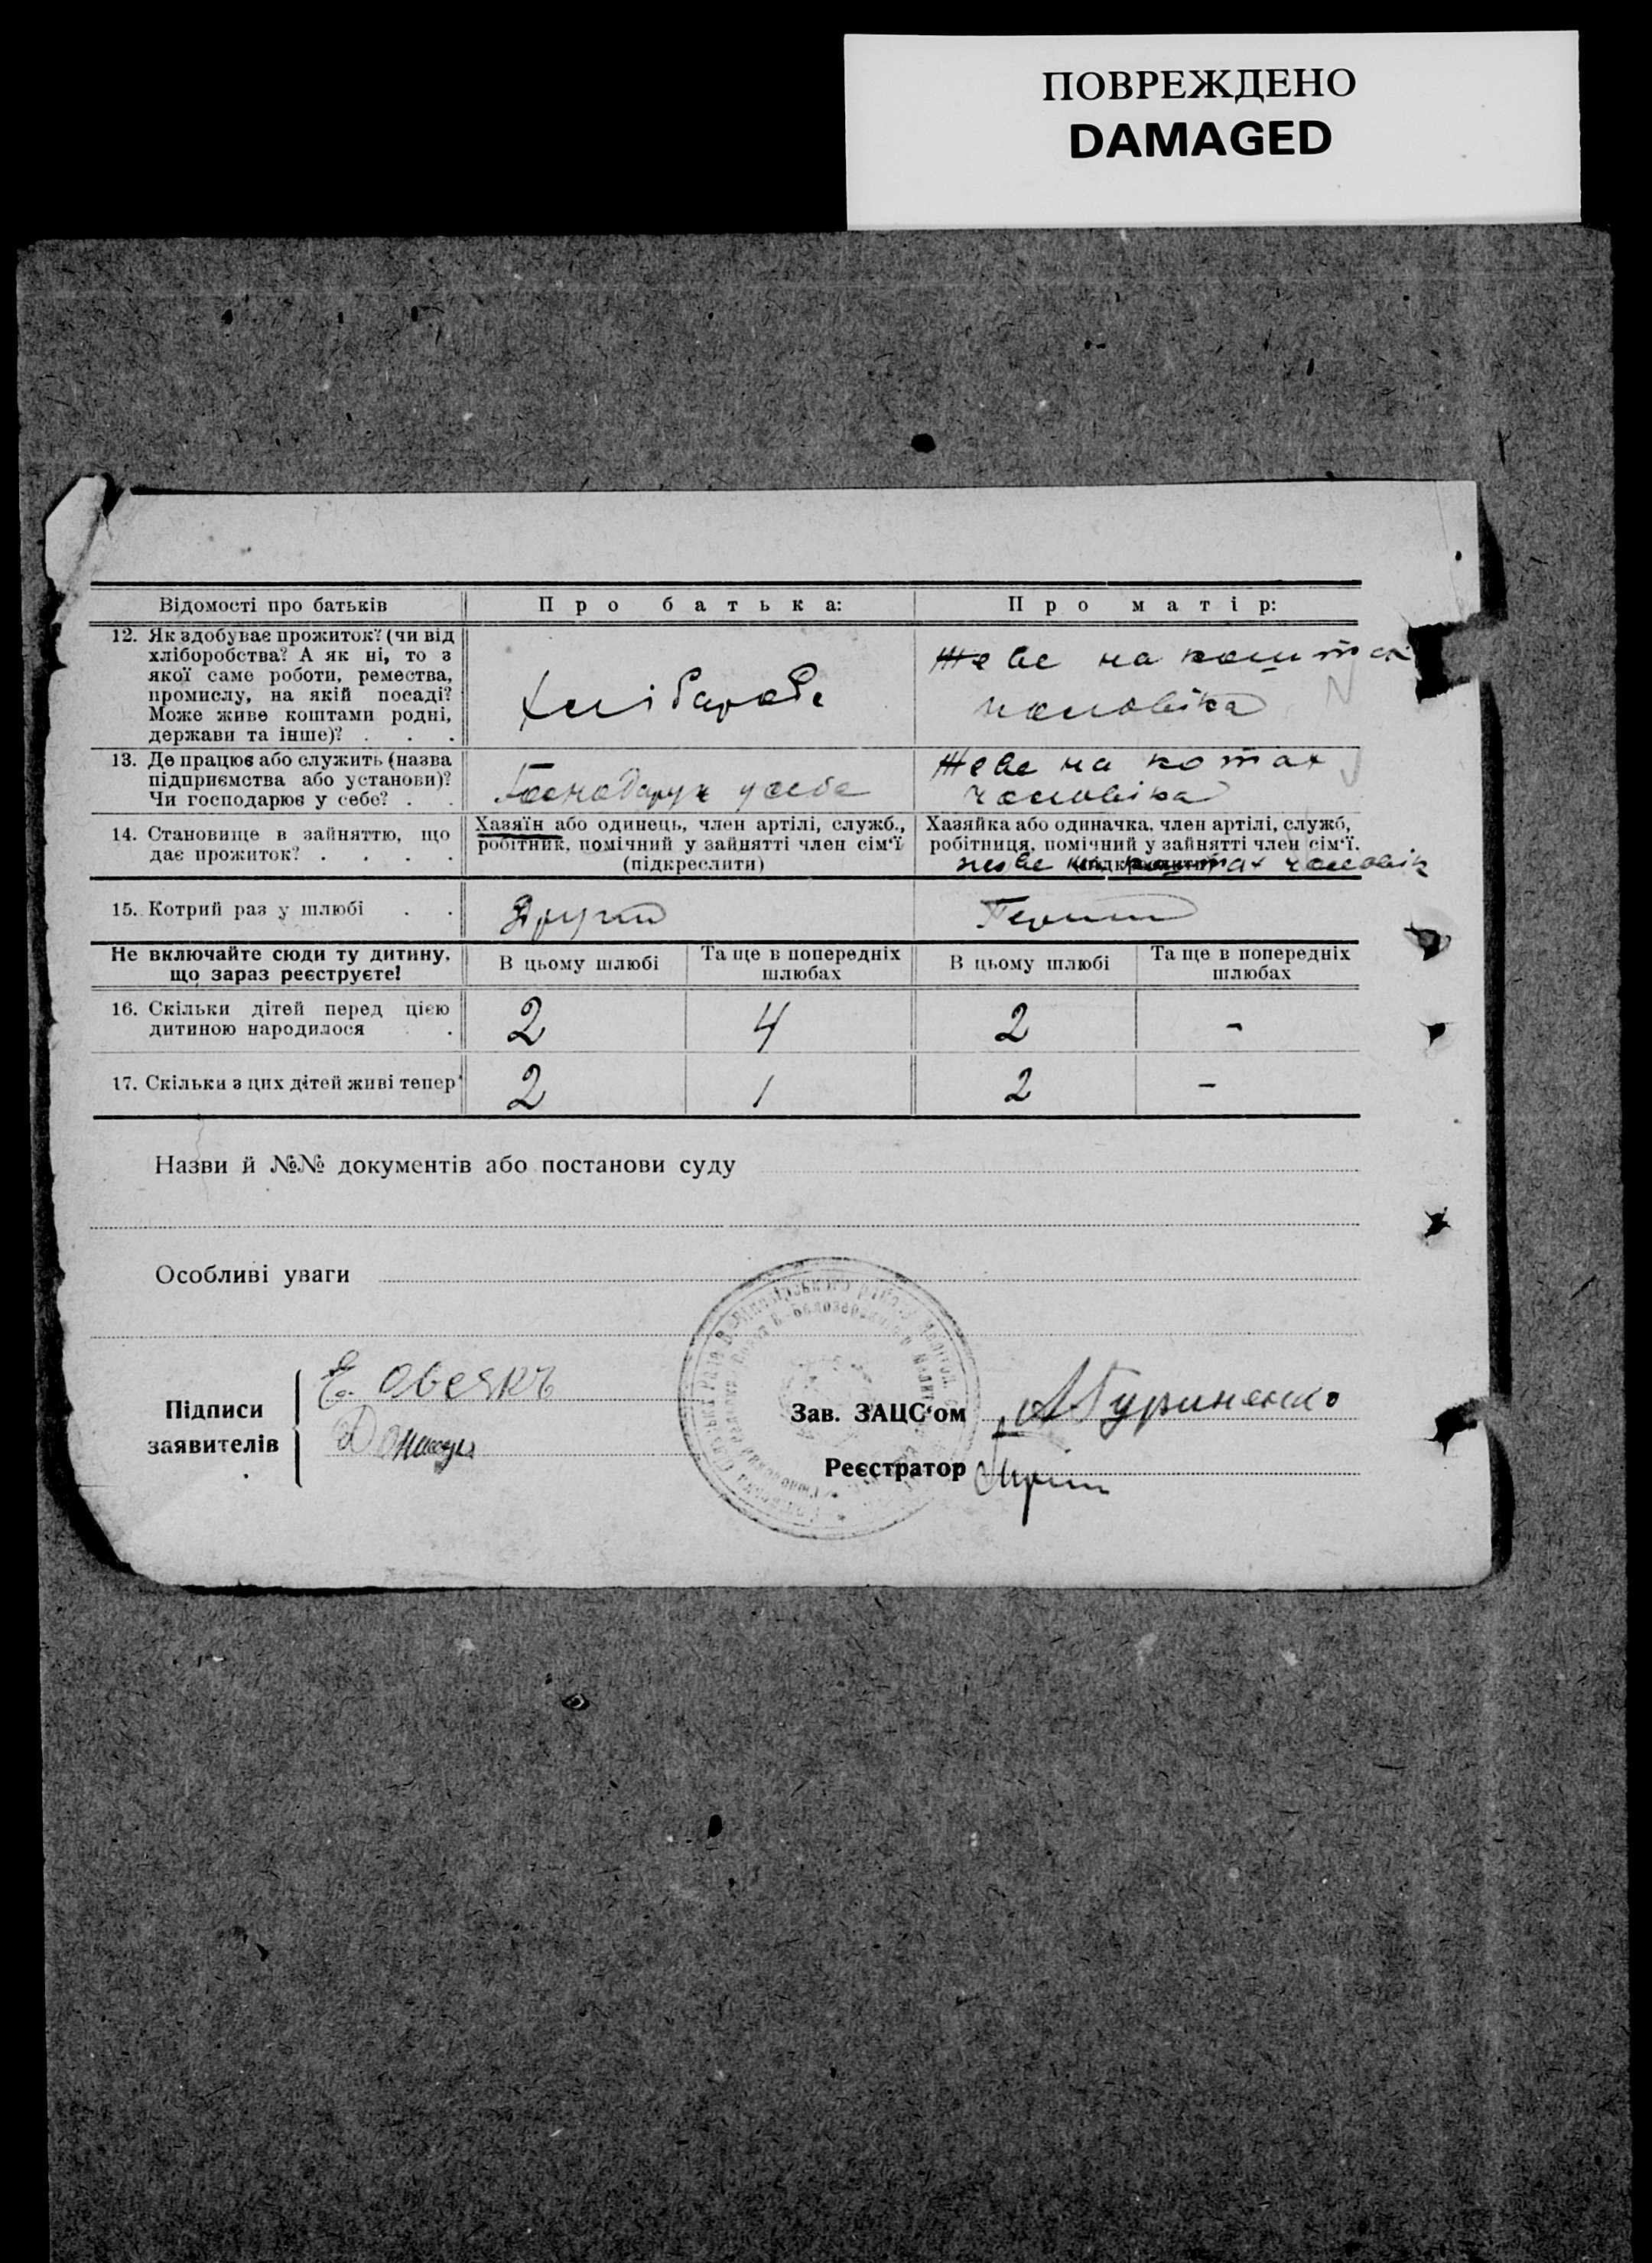 ПОВРЕЖДЕНО
DAMAGED
Відомості про батьків
Про батька:
Про матір:
12. Як здобуває прожиток? (чи від
хліборобства? А як ні, то з
якої саме роботи, ремества,
промислу, на якій посаді?
Може живе коштами родні,
держави та інше)? . . .
Жеве на коштах
чоловіка
13. Де працює або служить (назва
підприємства або установи)?
Чи господарює у себе? . .
у себе
Жеве на котах
чоловіка
14. Становище в зайняттю, що
дає прожиток? . . . .
Хазяїн або одинець, член артілі, служб.,
робітник, помічний у зайнятті член сім'ї
(підкреслити)
Хазяйка або одиначка, член артілі, служб,
робітниця, помічний у зайнятті член сім'ї.
(підкреслити)
живе на коштах чоловік
15. Котрий раз у шлюбі . .
Другий
Перший
Не включайте сюди ту дитину,
що зараз реєструєте!
В цьому шлюбі
Та ще в попередніх
шлюбах
В цьому шлюбі
Та ще в попередніх
шлюбах
16. Скільки дітей перед цією
дитиною народилося .
2
4
2
-
17. Скільки з цих дітей живі тепер
2
1
2
-
Назви й №№ документів або постанови суду
Особливі уваги
Підписи
заявителів
Е. Овсякъ
Зав. ЗАЦС'ом
Реєстратор